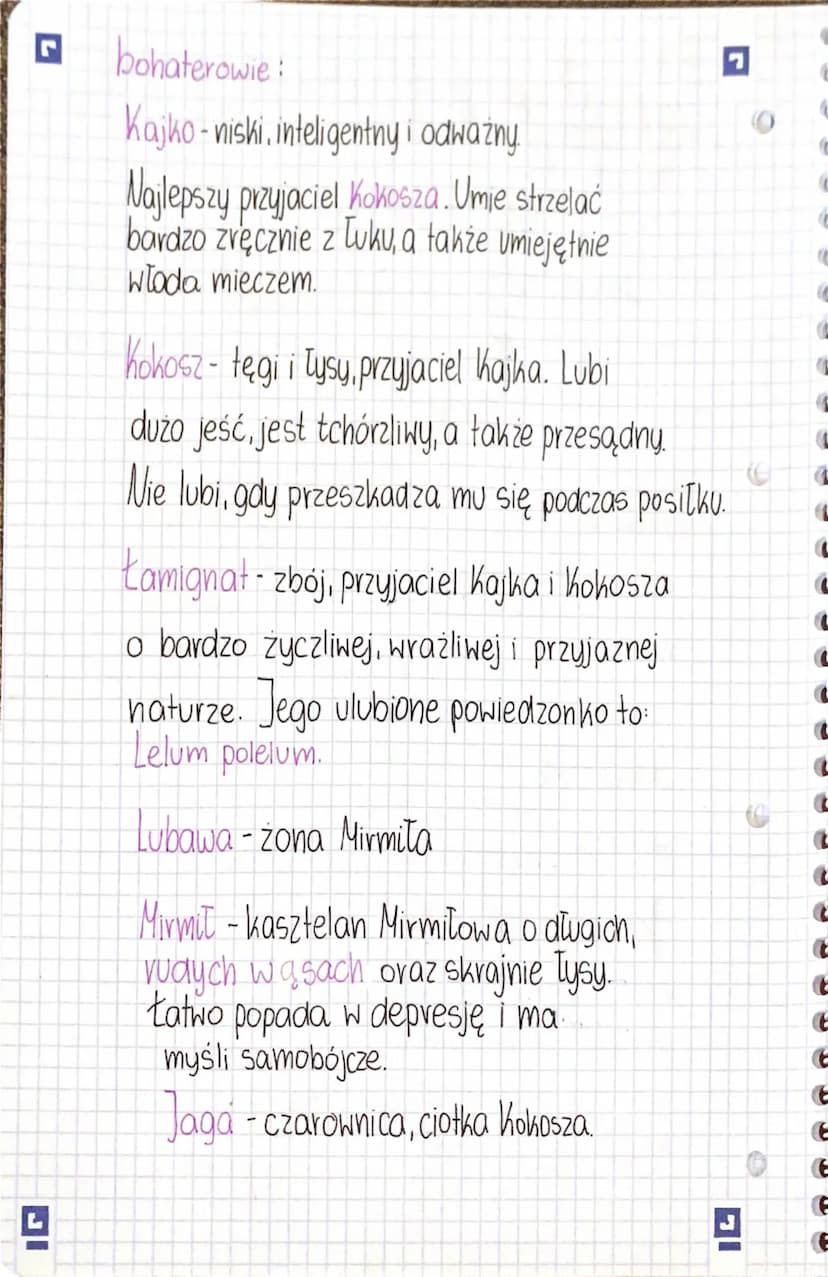 bohaterowie:
Kajko - niski, inteligentny i odważny.
Najlepszy przyjaciel Kokosza. Umie strzelać
bardzo zręcznie z łuku, a także umiejętnie
włada mieczem.
Kokosz - tęgi i łysy, przyjaciel Kajka. Lubi
dużo jeść, jest tchórzliwy, a także przesądny.
Nie lubi, gdy przeszkadza mu się podczas posiłku.
Łamignat - zbój, przyjaciel Kajka i Kokosza
o bardzo życzliwej, wrażliwej i przyjaznej
naturze. Jego ulubione powiedzonko to:
Lelum polelum.
Lubawa - żona Mirmiła
Mirmił - kasztelan Mirmiłowa o długich,
rudych wąsach oraz skrajnie łysy.
Łatwo popada w depresję i ma
myśli samobójcze.
Jaga - czarownica, ciotka Kokosza.